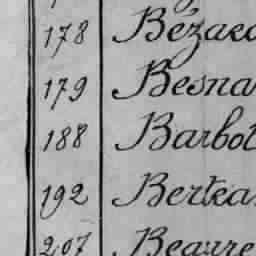 178 Bézard
179 Besna
188 Barbot
192 Bertra
207 Beaure